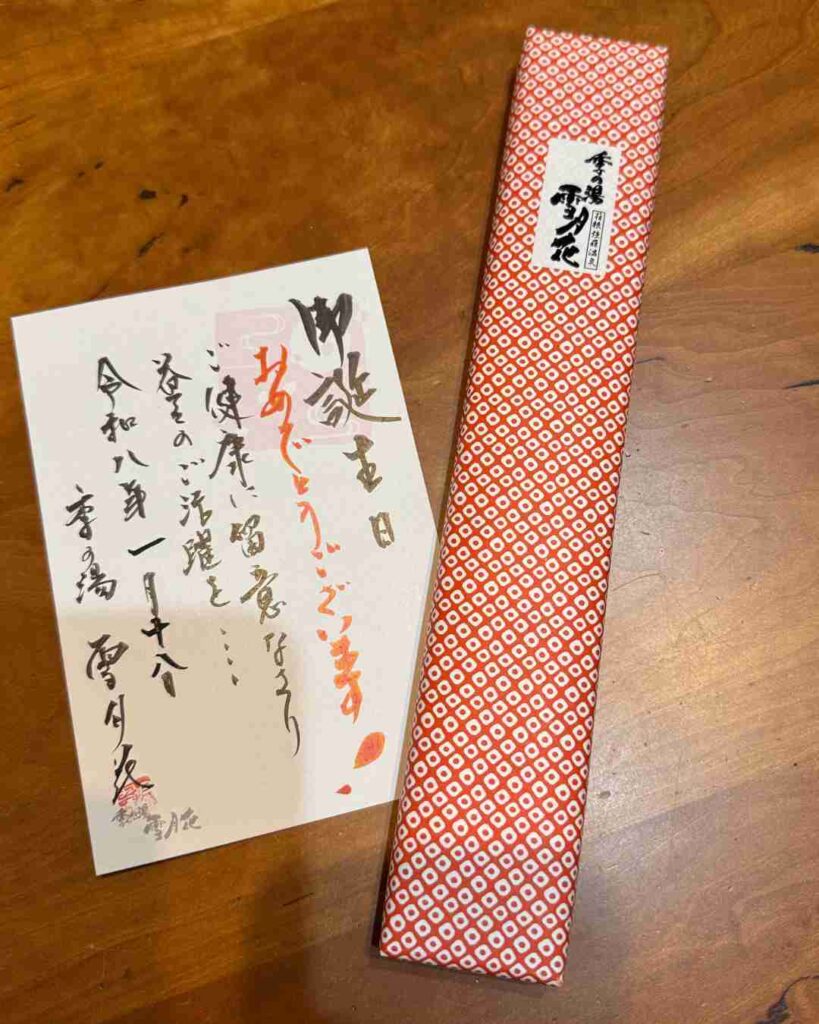 御誕生日
おめでとうございます
ご健康に留意なさり
益々のご活躍を‥‥
令和八年 一月十八日
季の湯 雪月花
季の湯 雪月花
季の湯
雪月花
箱根強羅温泉